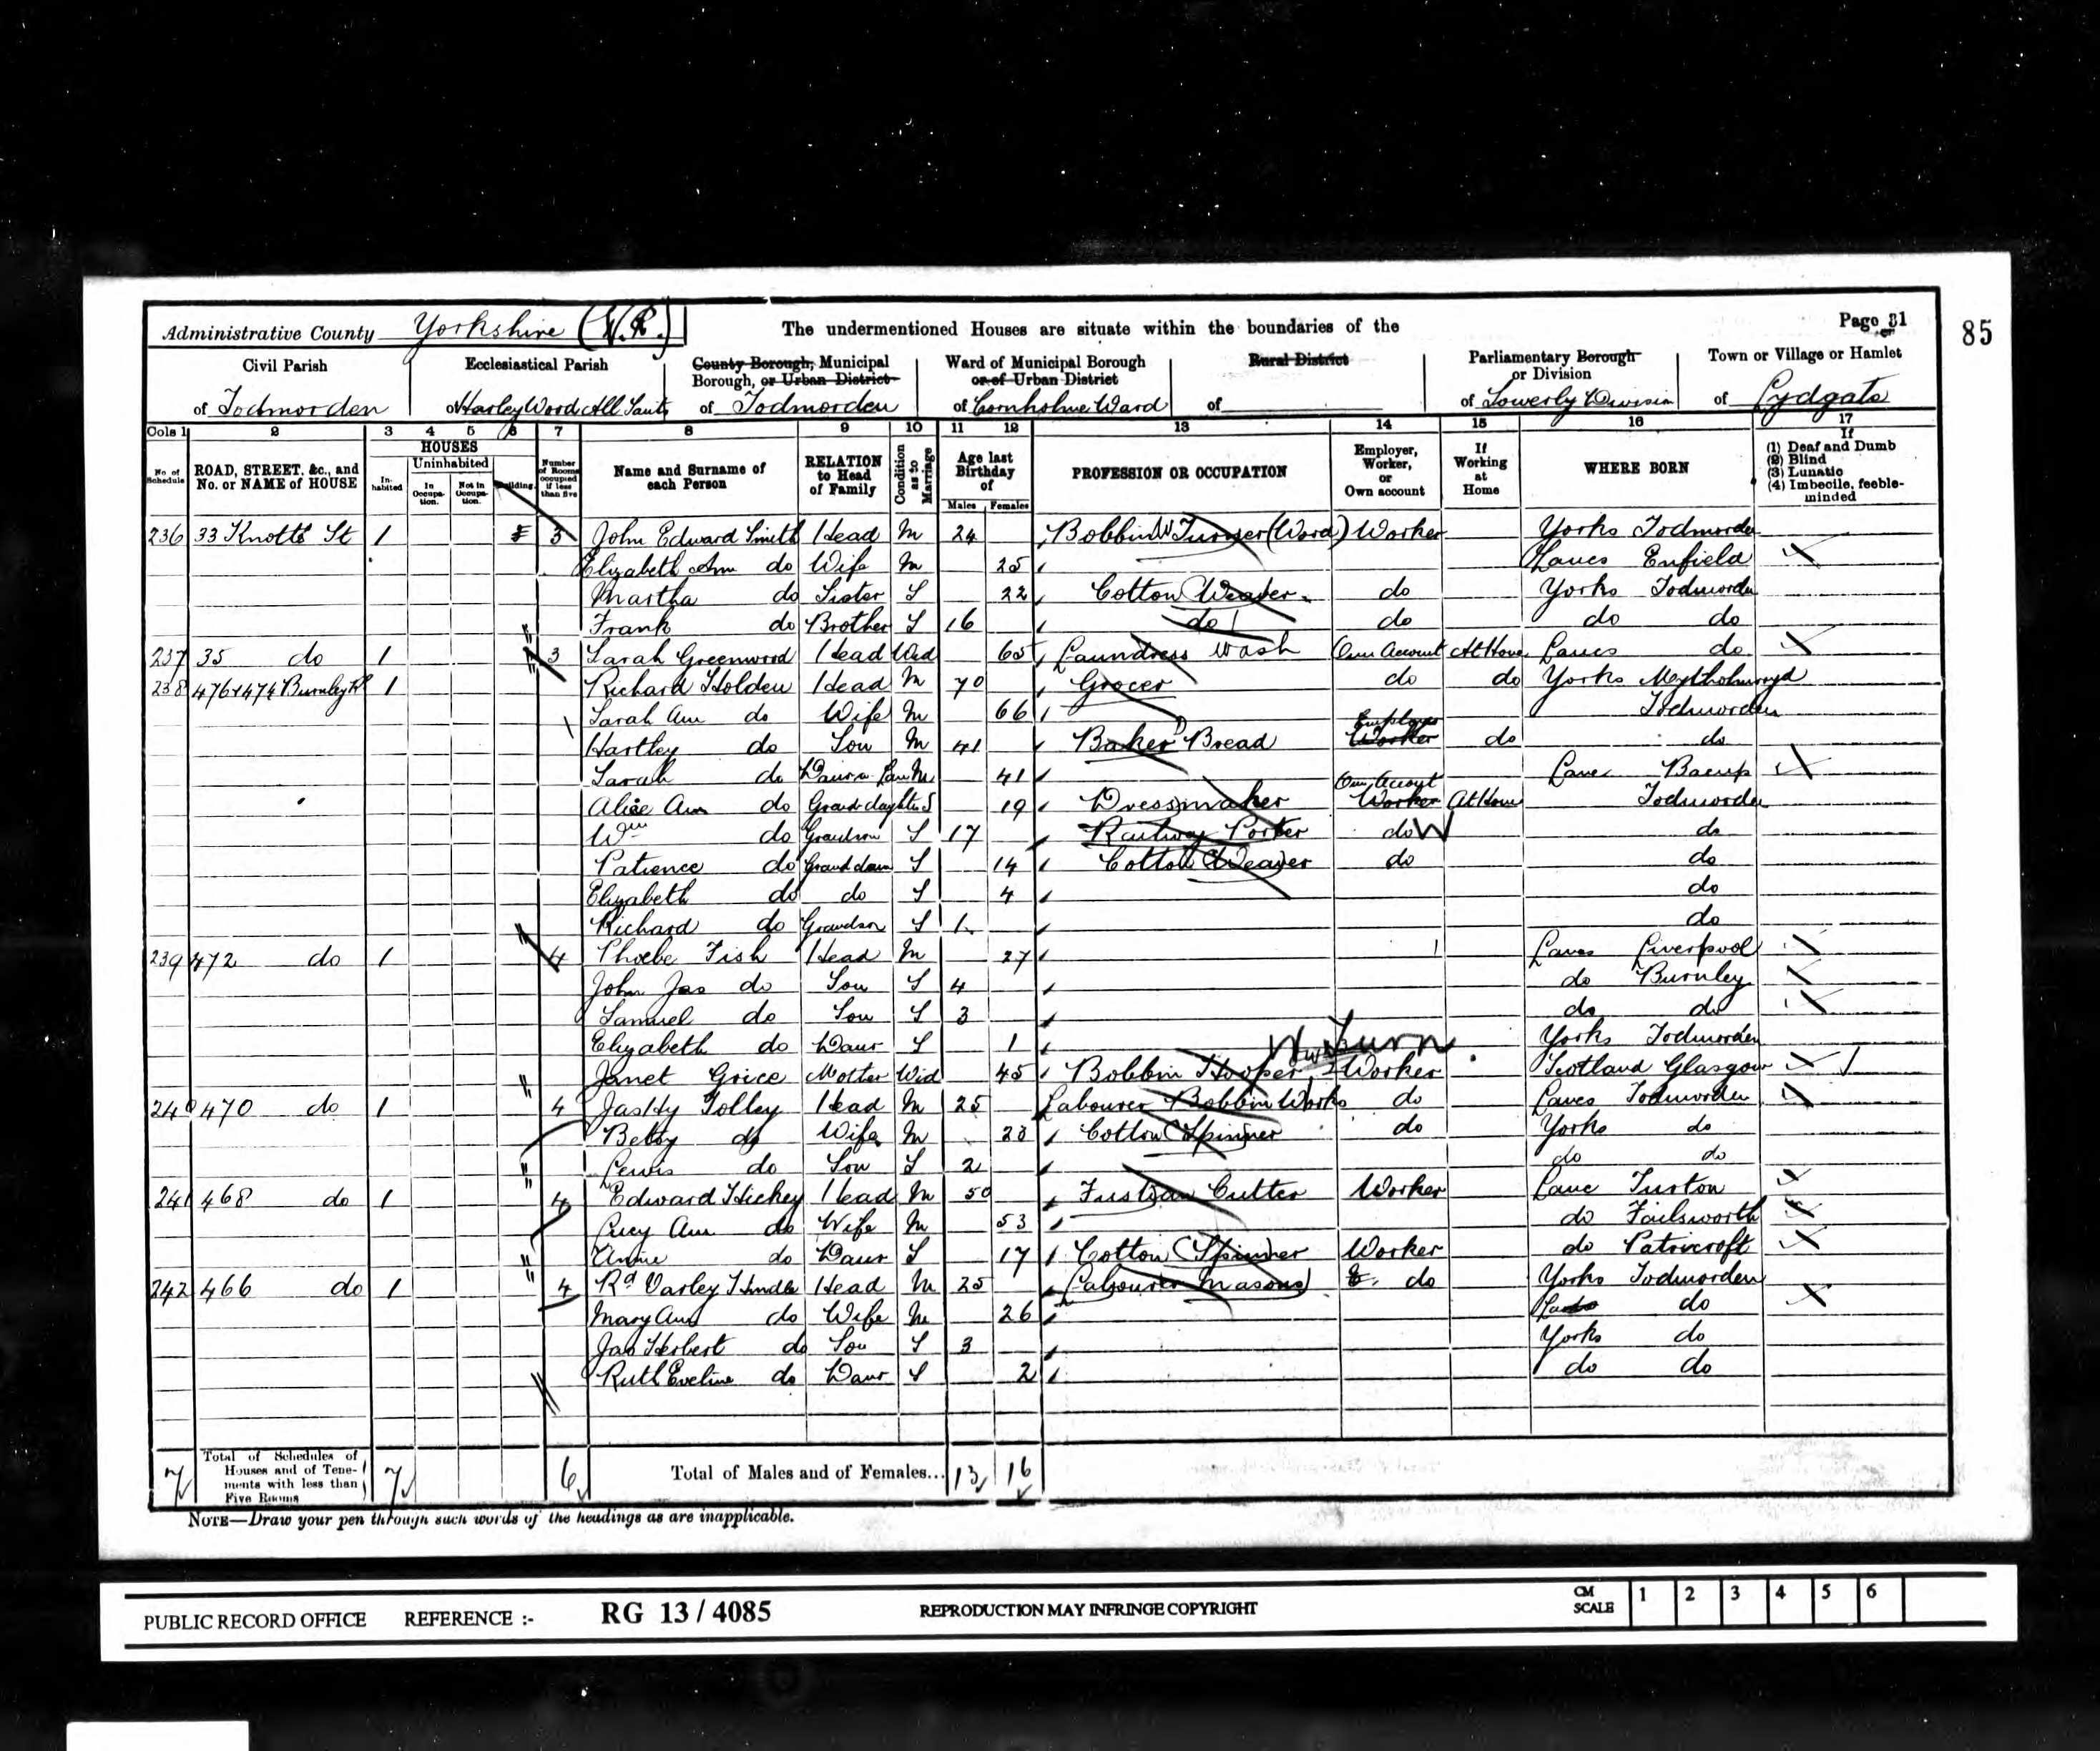 Administrative County Yorkshire (W.R.) The undermentioned Houses are situate within the boundaries of the Page 31
85
Civil Parish Ecclesiastical Parish County Borough, Municipal Borough, or Urban District Ward of Municipal Borough or of Urban District Rural District Parliamentary Borough or Division Town or Village or Hamlet
of Todmorden of Harley Wood All Saints of Todmorden of Cornholme Ward of of Sowerby Division of Lydgate
Cols 1 2 3 4 5 6 7 8 9 10 11 12 13 14 15 16 17
No. of Schedule ROAD, STREET, &c., and No. or NAME of HOUSE HOUSES Inhabited Uninhabited In Occupation. Not in Occupation. Building. Number of Rooms occupied if less than five Name and Surname of each Person RELATION to Head of Family Condition as to Marriage Age last Birthday of Males Females PROFESSION OR OCCUPATION Employer, Worker, or Own account If Working at Home WHERE BORN If (1) Deaf and Dumb (2) Blind (3) Lunatic (4) Imbecile, feeble-minded
236 33 Knotts St 1 3 John Edward Smith Head M 24 Bobbin Turner (Wood) Worker Yorks Todmorden
Elizabeth Ann do Wife M 25 Lancs Enfield
Martha do Sister S 22 Cotton Weaver do Yorks Todmorden
Frank do Brother S 16 do do do do
237 35 do 1 3 Sarah Greenwood Head Wid 65 Laundress Wash Own Account At Home Lancs do
238 476 & 474 Burnley Rd 1 Richard Holden Head M 70 Grocer do do Yorks Mytholmroyd
Sarah Ann do Wife M 66 Todmorden
Hartley do Son M 41 Baker Bread Employer Worker do do
Sarah do Daur in Law M 41 Lanc Bacup
Alice Ann do Granddaughter S 19 Dressmaker Own Account Worker At Home Todmorden
Wm do Grandson S 17 Railway Porter do W do
Patience do Grand daur S 14 Cotton Weaver do do
Elizabeth do do S 4 do
Richard do Grandson S 1 do
239 472 do 1 4 Phoebe Fish Head M 27 Lancs Liverpool
John Jas do Son S 4 do Burnley
Samuel do Son S 3 do do
Elizabeth do Daur S 1 Yorks Todmorden
Janet Grice Mother Wid 45 Bobbin Hooper Worker Scotland Glasgow
240 470 do 1 4 Jas Hy Tolley Head M 25 Labourer Bobbin Works do Lancs Todmorden
Betsy do Wife M 23 Cotton Spinner do Yorks do
Lewis do Son S 2 do do
241 468 do 1 4 Edward Hickey Head M 50 Fustian Cutter Worker Lanc Turton
Lucy Ann do Wife M 53 do Failsworth
Annie do Daur S 17 Cotton Spinner Worker do Patricroft
242 466 do 1 4 Rd Varley Hindle Head M 25 Labourer Masons do Yorks Todmorden
Mary Ann do Wife M 26 do
Jas Herbert do Son S 3 Yorks do
Ruth Eveline do Daur S 2 do do
7 Total of Schedules of Houses and of Tenements with less than Five Rooms 7 6 Total of Males and of Females... 13 16
NOTE—Draw your pen through such words of the headings as are inapplicable.
PUBLIC RECORD OFFICE REFERENCE :- RG 13 / 4085 REPRODUCTION MAY INFRINGE COPYRIGHT CM SCALE 1 2 3 4 5 6